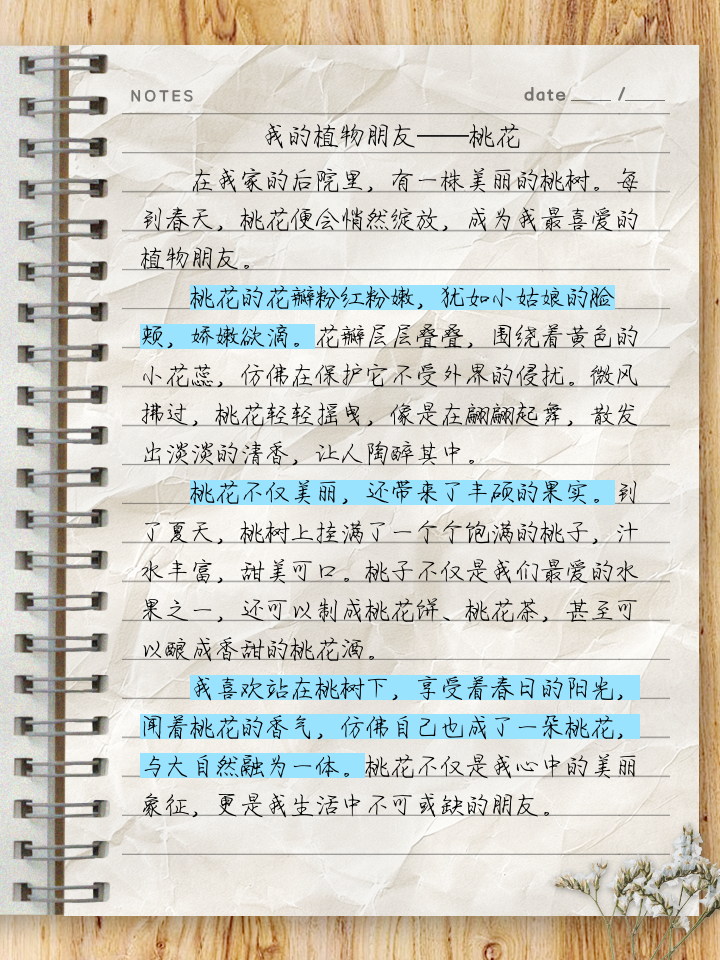 NOTES
date ____ /____
我的植物朋友——桃花
在我家的后院里，有一株美丽的桃树。每
到春天，桃花便会悄然绽放，成为我最喜爱的
植物朋友。
桃花的花瓣粉红粉嫩，犹如小姑娘的脸
颊，娇嫩欲滴。花瓣层层叠叠，围绕着黄色的
小花蕊，仿佛在保护它不受外界的侵扰。微风
拂过，桃花轻轻摇曳，像是在翩翩起舞，散发
出淡淡的清香，让人陶醉其中。
桃花不仅美丽，还带来了丰硕的果实。到
了夏天，桃树上挂满了一个个饱满的桃子，汁
水丰富，甜美可口。桃子不仅是我们最爱的水
果之一，还可以制成桃花饼、桃花茶，甚至可
以酿成香甜的桃花酒。
我喜欢站在桃树下，享受着春日的阳光，
闻着桃花的香气，仿佛自己也成了一朵桃花，
与大自然融为一体。桃花不仅是我心中的美丽
象征，更是我生活中不可或缺的朋友。